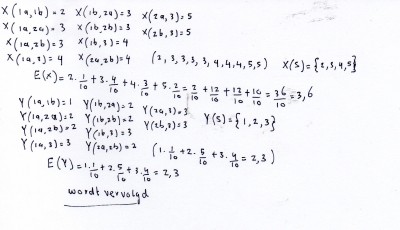 X(1a,1b)=2 X(1b,2a)=3 X(2a,3)=5
X(1a,2a)=3 X(1b,2b)=3 X(2b,3)=5
X(1a,2b)=3 X(1b,3)=4
X(1a,3)=4 X(2a,2b)=4 (2,3,3,3,3,4,4,4,5,5) X(S)={2,3,4,5}
E(X)=2·1/10+3·4/10+4·3/10+5·2/10=2/10+12/10+12/10+10/10=36/10=3,6
Y(1a,1b)=1 Y(1b,2a)=2 Y(2a,3)=3
Y(1a,2a)=2 Y(1b,2b)=2 Y(2b,3)=3 Y(S)={1,2,3}
Y(1a,2b)=2 Y(1b,3)=3
Y(1a,3)=3 Y(2a,2b)=2 (1·1/10+2·5/10+3·4/10=2,3)
E(Y)=1·1/10+2·5/10+3·4/10=2,3
wordt vervolgd